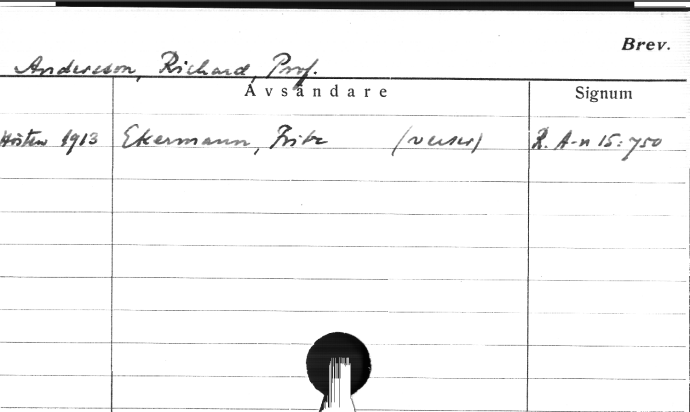 Brev.
Andersson, Richard, Prof.
Avsändare Signum
Hösten 1913 Ekermann, Fritz (verser) R. A-n 15:750